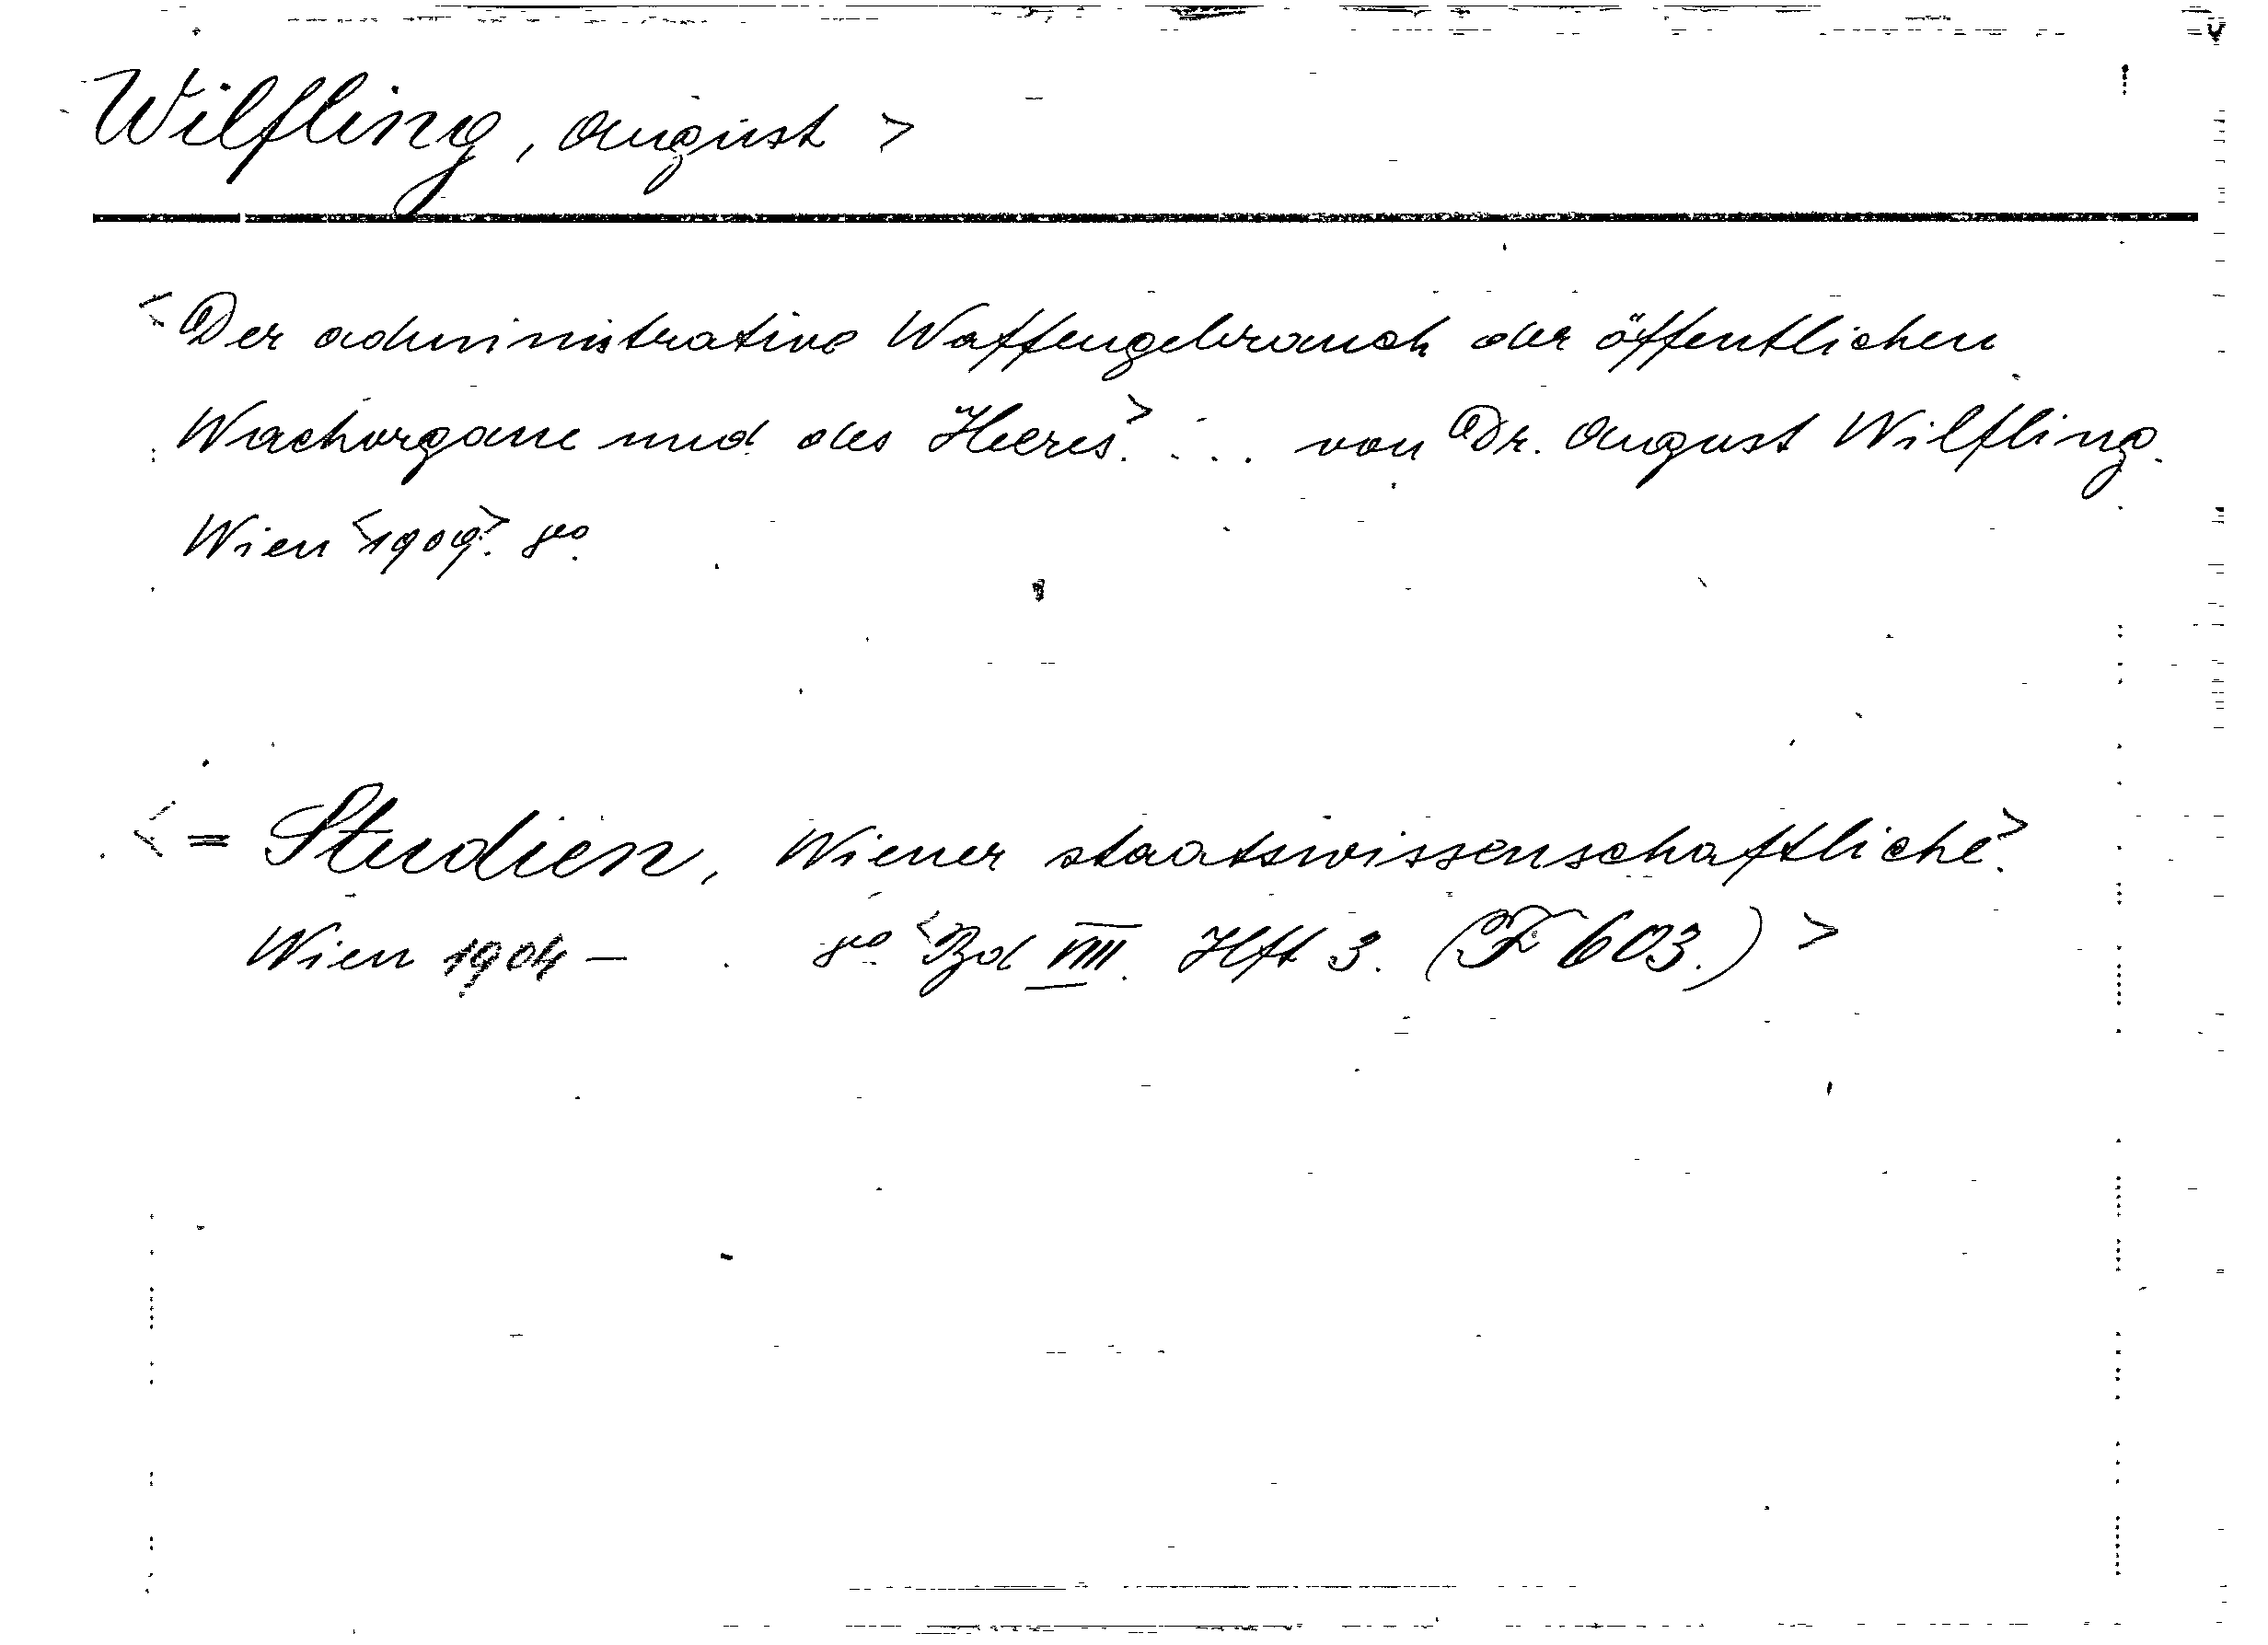 Wilfling, August >
<Der administrative Waffengebrauch der öffentlichen
Wachorgane und des Heeres.> ... von Dr. August Wilfling.
Wien <1909>. 8vo.
<= Studien, Wiener staatswissenschaftliche>.
Wien 1904 – . 8vo. <Bd VIII. Hft 3. (F 603.) >